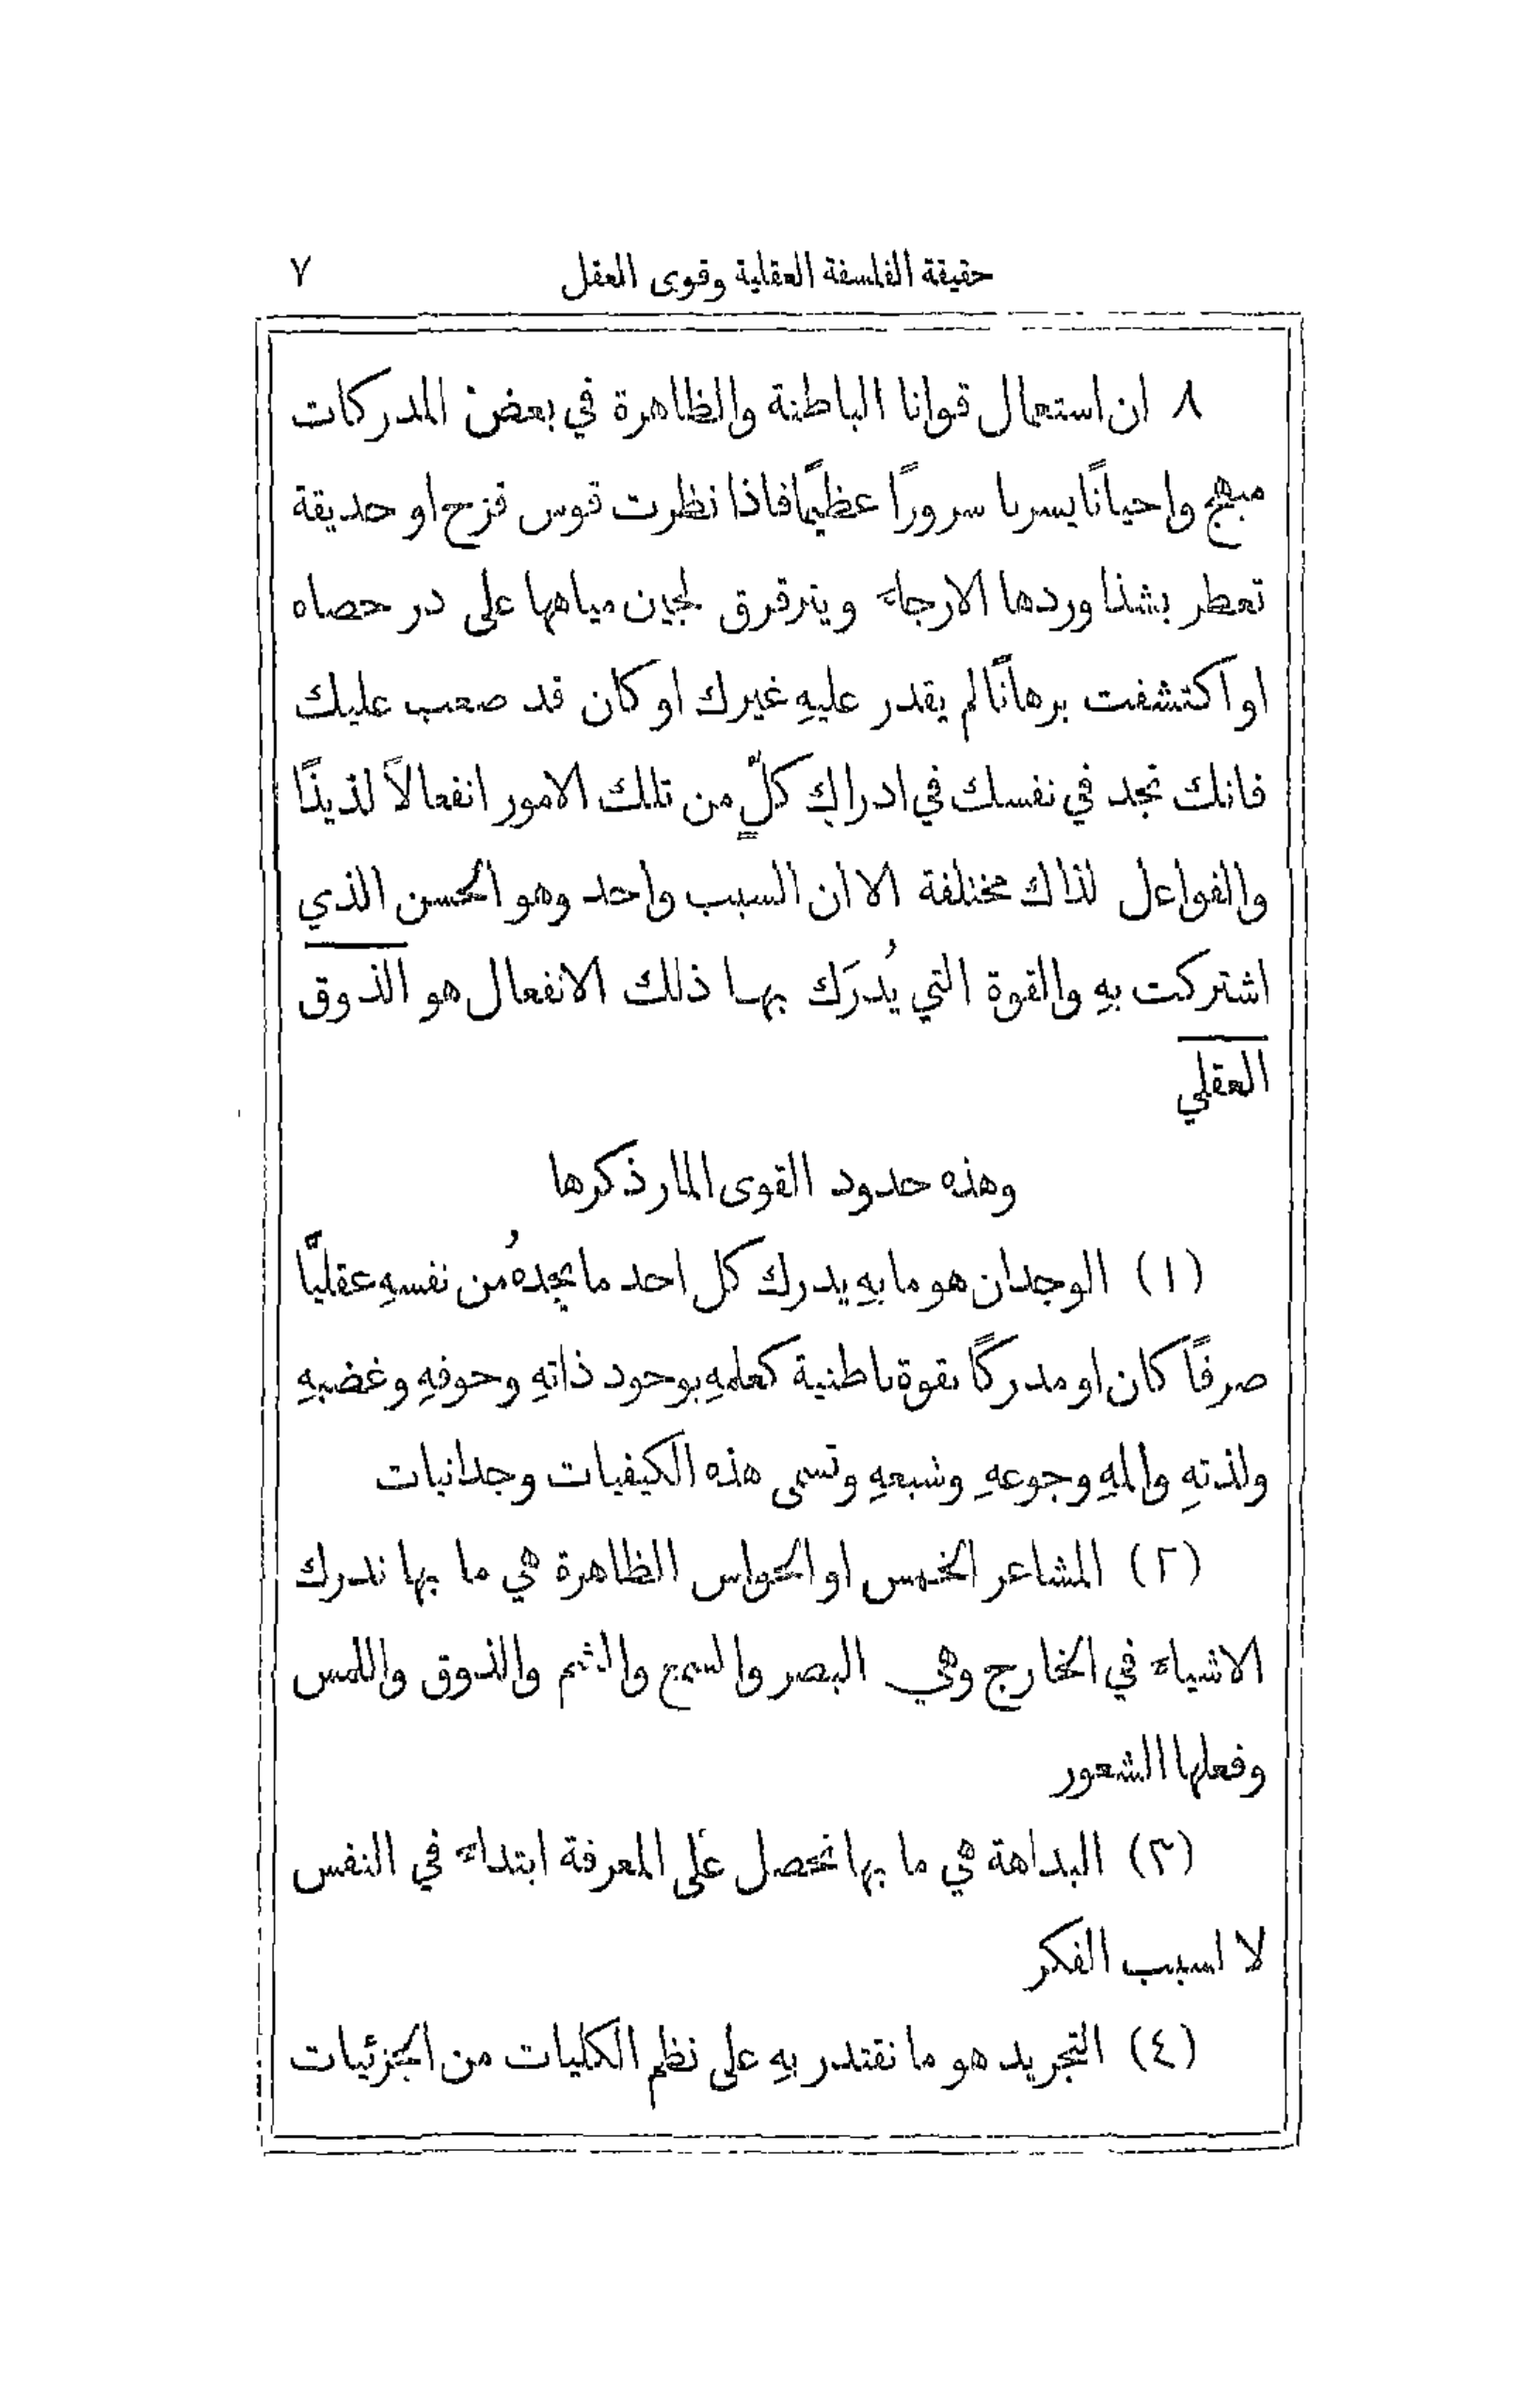 حقيقة الفلسفة العقلية وقوى العقل ٧
٨ ان استعمال قوانا الباطنة والظاهرة في بعض المدركات
مبهج واحيانًا يسرنا سرورًا عظيمًا فاذا نظرت قوس قزح او حديقة
تعطر بشذا وردها الارجاء ويترقرق لجين مياهها على در حصاه
او اكتشفت برهانًا لم يقدر عليهِ غيرك او كان قد صعب عليك
فانك تجد في نفسك في ادراكِ كلٍّ من تلك الامور انفعالاً لذيذًا
والفواعل لذاك مختلفة الا ان السبب واحد وهو الحسن الذي
اشتركت بهِ والقوة التي يُدرَك بها ذلك الانفعال هو الذوق
العقلي
وهذه حدود القوى المار ذكرها
(١) الوجدان هو ما بهِ يدرك كل احد ما يجدهُ من نفسهِ عقليًّا
صرفًا كان او مدركًا بقوة باطنية كعلمهِ بوجود ذاتهِ وخوفهِ وغضبهِ
ولذتهِ والمهِ وجوعهِ وشبعهِ وتسمى هذه الكيفيات وجدانيات
(٢) المشاعر الخمس او الحواس الظاهرة هي ما بها ندرك
الاشياء في الخارج وهي البصر والسمع والشم والذوق واللمس
وفعلها الشعور
(٣) البداهة هي ما بها نحصل على المعرفة ابتداء في النفس
لا لسبب الفكر
(٤) التجريد هو ما نقتدر بهِ على نظم الكليات من الجزئيات